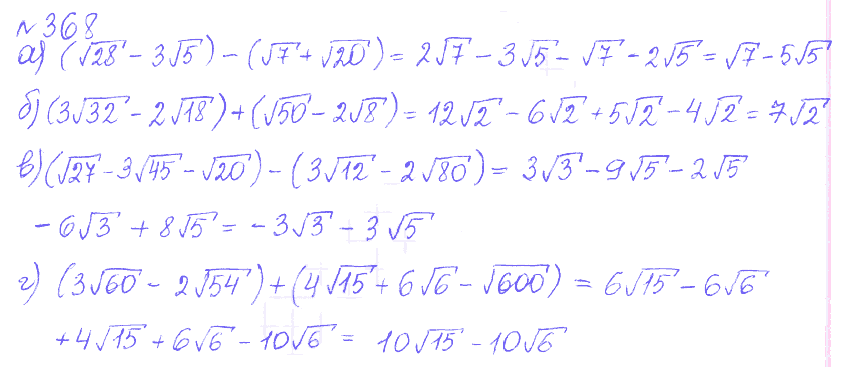 №368
а) (√28 - 3√5) - (√7 + √20) = 2√7 - 3√5 - √7 - 2√5 = √7 - 5√5
б) (3√32 - 2√18) + (√50 - 2√8) = 12√2 - 6√2 + 5√2 - 4√2 = 7√2
в) (√27 - 3√45 - √20) - (3√12 - 2√80) = 3√3 - 9√5 - 2√5
- 6√3 + 8√5 = - 3√3 - 3√5
г) (3√60 - 2√54) + (4√15 + 6√6 - √600) = 6√15 - 6√6
+ 4√15 + 6√6 - 10√6 = 10√15 - 10√6